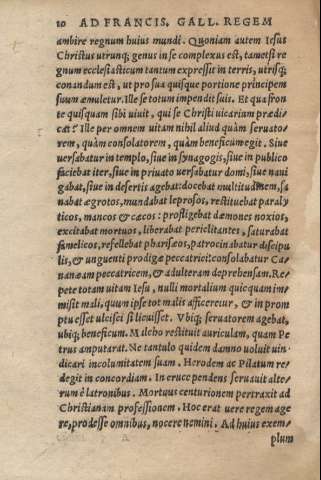 10 AD FRANCIS. GALL. REGEM
ambire regnum huius mundi. Quoniam autem Iesus
Christus utrunq; genus in se complexus est, tametsi re
gnum ecclesiasticum tantum expressit in terris, utrisq;
conandum est, ut pro sua quisque portione principem
suum æmuletur. Ille se totum impendit suis. Et qua fron
te quisquam sibi uiuit, qui se Christi uicarium prædi-
cat? Ille per omnem uitam nihil aliud quàm seruato-
rem, quàm consolatorem, quàm beneficum egit. Siue
uersabatur in templo, siue in synagogis, siue in publico
faciebat iter, siue in priuato uersabatur domi, siue naui
gabat, siue in desertis agebat: docebat multitudinem, sa
nabat ægrotos, mundabat leprosos, restituebat paraly
ticos, mancos & cæcos: profligebat dæmones noxios,
excitabat mortuos, liberabat periclitantes, saturabat
famelicos, refellebat pharisæos, patrocinabatur discipu
lis, & unguenti prodigæ peccatrici: consolabatur Ca-
nanæam peccatricem, & adulteram deprehensam. Re-
pete totam uitam Iesu, nulli mortalium quicquam im
misit mali, quum ipse tot malis afficeretur, & in prom
ptu esset ulcisci si licuisset. Vbiq; seruatorem agebat,
ubiq; beneficum. Malcho restituit auriculam, quam Pe
trus amputarat. Ne tantulo quidem damno uoluit uin-
dicari incolumitatem suam. Herodem ac Pilatum re-
degit in concordiam. In cruce pendens seruauit alte-
rum è latronibus. Mortuus centurionem pertraxit ad
Christianam professionem. Hoc erat uere regem age
re, prodesse omnibus, nocere nemini. Ad huius exem-
plum